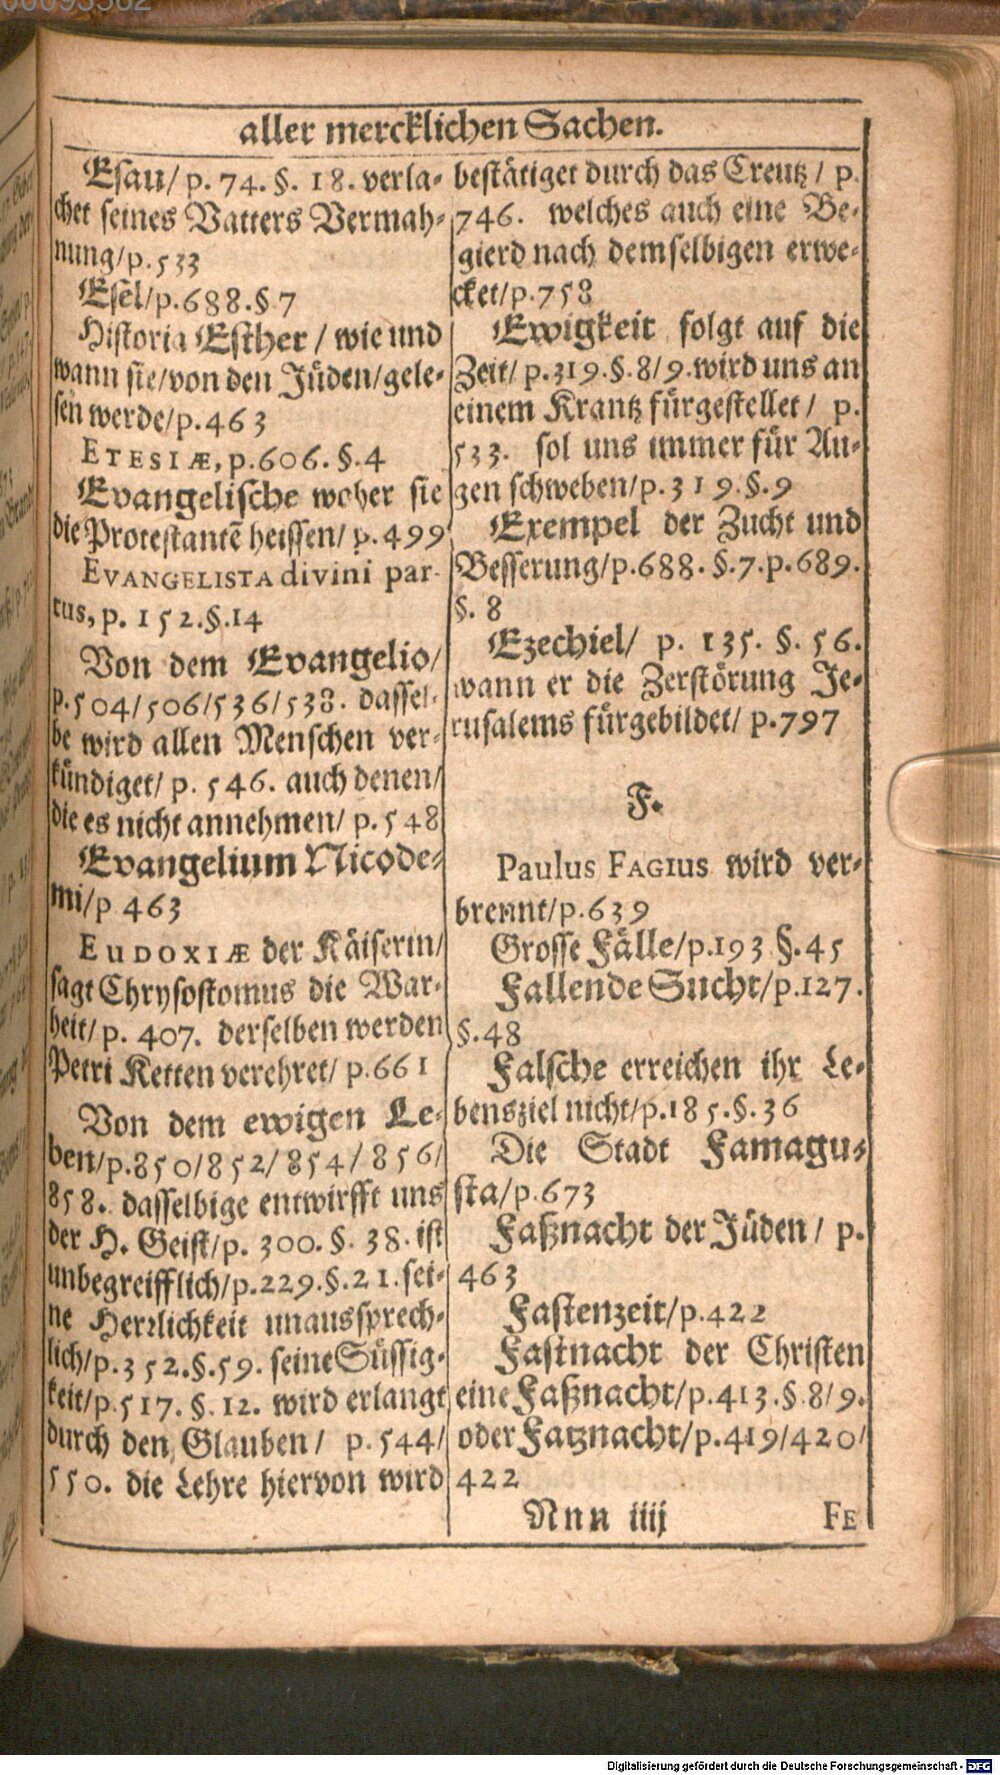 00093562
aller mercklichen Sachen.
Esau/ p. 74. §. 18. verla-
chet seines Vatters Vermah-
nung/p. 533
Esel/p. 688. § 7
Historia Esther / wie und
wann sie/von den Jüden/gele-
sen werde/p. 463
ETESIÆ, p. 606. §. 4
Evangelische woher sie
die Protestantẽ heissen/ p. 499
EVANGELISTA divini par-
tus, p. 152. §. 14
Von dem Evangelio/
p. 504/506/536/538. dassel-
be wird allen Menschen ver-
kündiget/ p. 546. auch denen/
die es nicht annehmen/ p. 548
Evangelium Nicode-
mi/p 463
EUDOXIÆ der Käiserin/
sagt Chrysostomus die War-
heit/ p. 407. derselben werden
Petri Ketten verehret/ p. 661
Von dem ewigen Le-
ben/p. 850/852/854/856/
858. dasselbige entwirfft uns
der H. Geist/p. 300. §. 38. ist
unbegreifflich/p. 229. §. 21. sei-
ne Herrlichkeit unaussprech-
lich/p. 352. §. 59. seine Süssig-
keit/p. 517. §. 12. wird erlangt
durch den Glauben/ p. 544/
550. die Lehre hiervon wird
bestätiget durch das Creutz / p.
746. welches auch eine Be-
gierd nach demselbigen erwe-
cket/p. 758
Ewigkeit folgt auf die
Zeit/ p. 319. §. 8/9. wird uns an
einem Krantz fürgestellet/ p.
533. sol uns immer für Au-
gen schweben/p. 319. §. 9
Exempel der Zucht und
Besserung/p. 688. §. 7. p. 689.
§. 8
Ezechiel/ p. 135. §. 56.
wann er die Zerstörung Je-
rusalems fürgebildet/ p. 797
F.
Paulus FAGIUS wird ver-
brennt/p. 639
Grosse Fälle/p. 193 §. 45
Fallende Sucht/p. 127.
§. 48
Falsche erreichen ihr Le-
bensziel nicht/p. 185. §. 36
Die Stadt Famagu-
sta/p. 673
Faßnacht der Jüden / p.
463
Fastenzeit/p. 422
Fastnacht der Christen
eine Faßnacht/p. 413. §. 8/9.
oder Fatznacht/p. 419/420/
422
Nnn iiij
FE
Digitalisierung gefördert durch die Deutsche Forschungsgemeinschaft - DFG